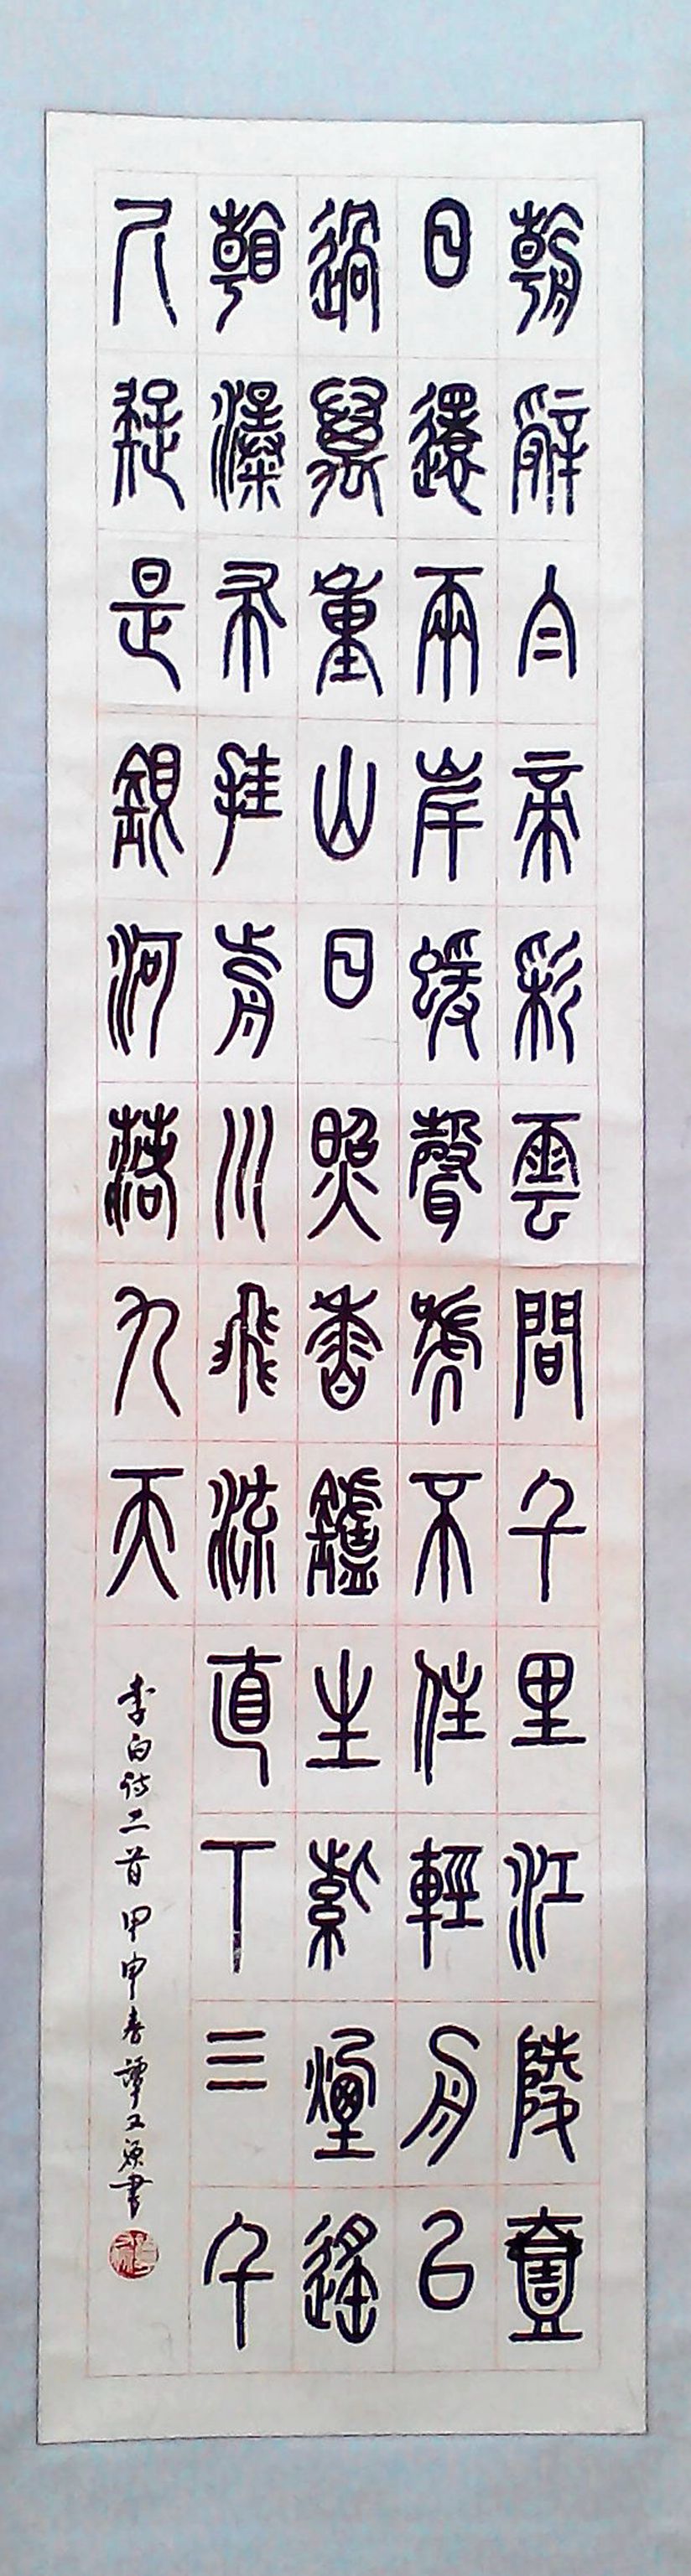 朝辭白帝彩雲間千里江陵壹
日還兩岸蝯聲嗁不住輕舟已
過萬重山日照香鑪生紫煙遙
看瀑布挂前川飛流直下三千
尺疑是銀河落九天
李白诗二首 甲申春譚又書